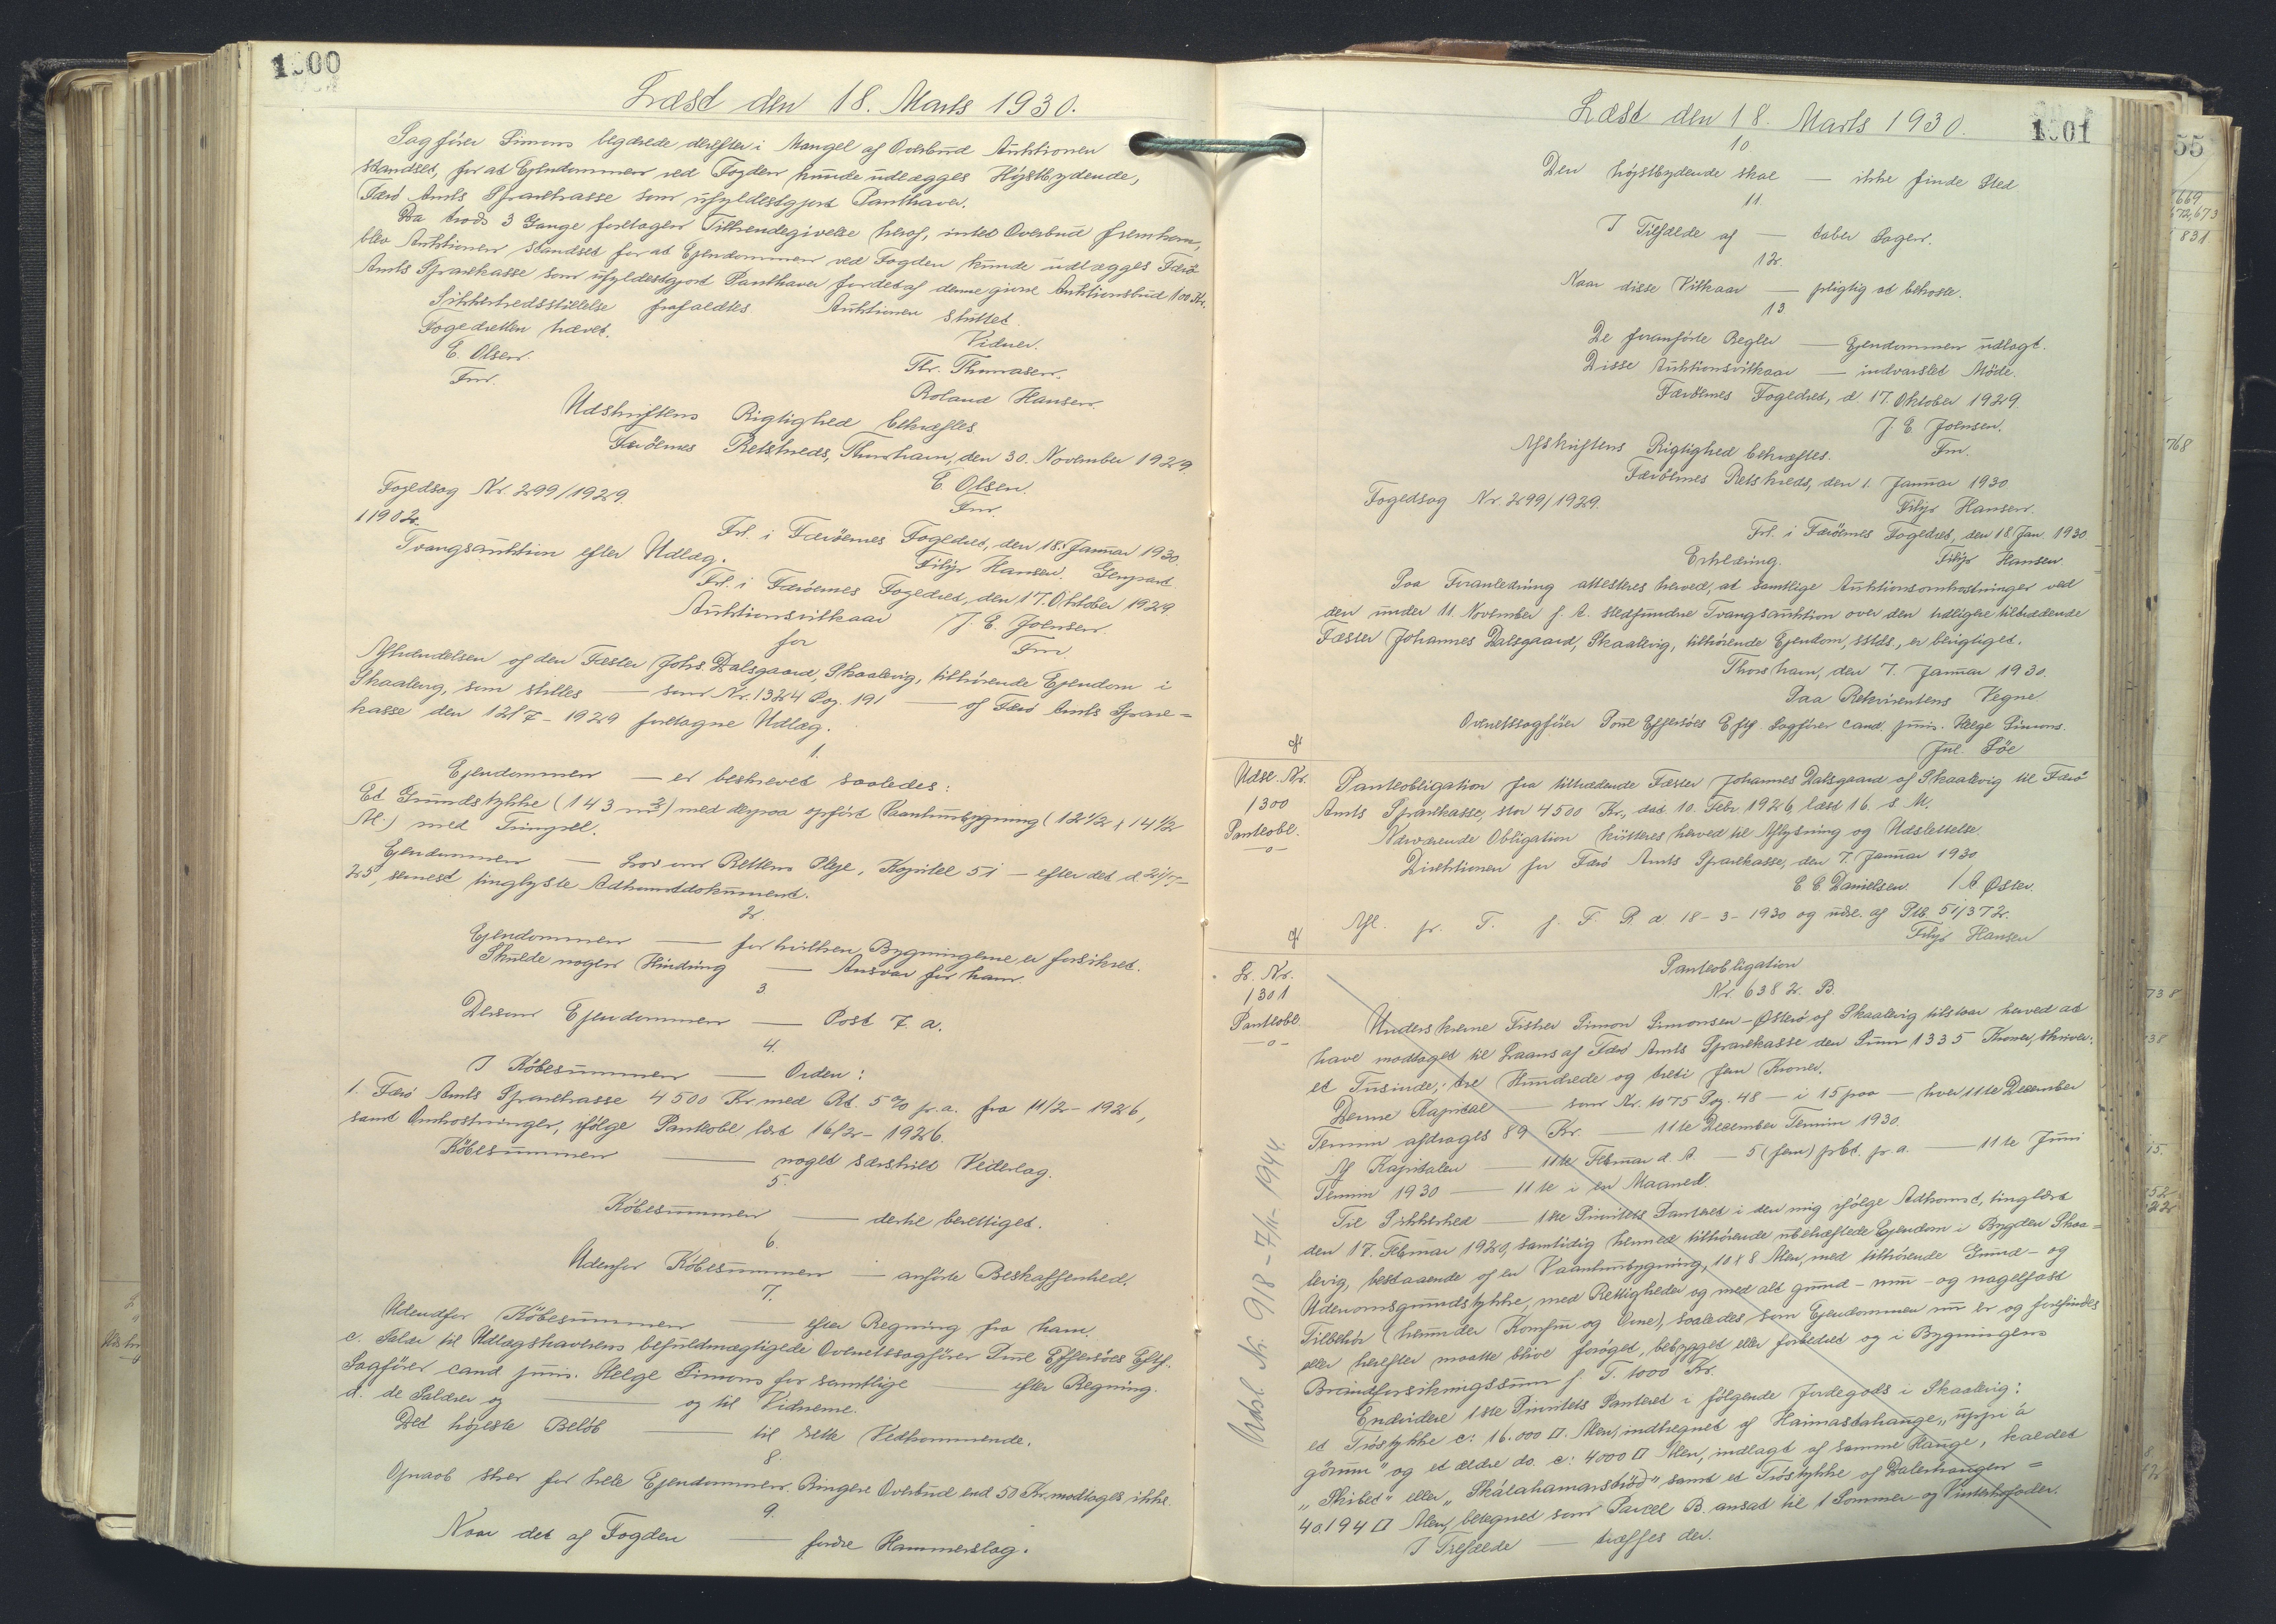 1300
Læst den 18. Marts 1930.
Sagfører Simons begærede derefter i Mangel af Overbud Auktionen
standset, for at Ejendommen ved Fogden kunde udlægges Højstbydende,
Færø Amts Sparekasse som ufyldestgjort Panthaver.
Da trods 3 Gange foretagen Tilkendegivelse herof, intet Overbud fremkom,
blev Auktionen standset for at Ejendommen ved Fogden kunde udlægges Færø
Amts Sparekasse som ufyldestgjort Panthaver for det af denne givne Auktionsbud 100 Kr.
Sikkerhedsstillelse frafaldtes. Auktionen sluttet.
Fogedretten hævet. Vidner.
E. Olsen. Thr. Thomasen.
Fm. Roland Hansen.
Udskriftens Rigtighed bekræftes.
Færöernes Retskreds, Thorshavn, den 30. November 1929.
E. Olsen.
Fogedsag Nr. 299/1929. Fm.
11902.
Frl. i Færöernes Fogedret, den 18. Januar 1930.
Tvangsauktion efter Udlæg. Filip Hansen. Genpart
Frl. i Færöernes Fogedret, den 17. Oktober 1929.
Auktionsvilkaar J. E. Joensen.
for Fm
Afhændelsen af den Fæster Johs. Dalsgaard, Skaalevig, tilhørende Ejendom i
Skaalevig, som stilles — som Nr. 1324 Pag. 191 — af Færö Amts Spare=
kasse den 12/7 - 1929 foretagne Udlæg.
1.
Ejendommen — er beskrevet saaledes:
Et Grundstykke (143 m²) med derpaa opført Vaaningsbygning (12 1/2 x 14 1/2
Al.) med Tungrel.
Ejendommen — Lov om Rettens Pleje, Kapitel 51 — efter det d. 21/7-
25, senest tinglyste Adkomstdokument.
2.
Ejendommen — forhvilken Bygningerne er forsikret.
Skulde nogen Hindring — Ansvar for ham.
3.
Dersom Ejendommen — Post 7. a.
4.
I Köbesummen — Orden:
1. Færö Amts Sparekasse 4500 Kr. med Rt. 5% p.a. fra 11/2 - 1926,
samt Omkostninger, ifölge Panteobl. læst 16/2 - 1926.
Köbesummen — noget særskilt Vederlag.
5.
Köbesummen — dertil berettiget.
6.
Udenfor Köbesummen — anførte Beskaffenhed.
7.
Udendfor Köbesummen — efter Regning fra ham.
c. Salær til Udlægshaverens befuldmægtigede Overretssagfører Poul Effersöes Eftf.
Sagfører cand. juris. Helge Simons for samtlige — efter Regning.
d. de Salærer og — og til Vidnerne.
Det højeste Beløb — til rette Vedkommende.
8.
Opraab sker for hele Ejendommen. Ringere Overbud end 50 Kr. modtages ikke.
9.
Naar det af Fogden — fordre Hammerslag.
1301
Læst den 18. Marts 1930.
10
Den højstbydende skal — ikke finde Sted
11.
I Tilfælde af — taber Sagen.
12.
Naar disse Vilkaar — pligtig at bekoste.
13.
De foranførte Regler — Ejendommen udlagt.
Disse Auktionsvilkaar — indvarslet Møde.
Færöernes Fogedret, d. 17. Oktober 1929.
J. E. Joensen.
Afskriftens Rigtighed bekræftes. Fm.
Færöernes Retskreds, den 1. Januar 1930
Fogedsag Nr. 299/1929. Filip Hansen.
Frl. i Færöernes Fogedret, den 18. Jan. 1930.
Erklæring. Filip Hansen
Paa Foranledning attesteres herved, at samtlige Auktionsomkostninger ved
den under 11. November f. A. stedfundne Tvangsauktion over den tidligere tiltrædende
Fæster Johannes Dalsgaard, Skaalevig, tilhørende Ejendom, sstds., er berigtiget.
Thorshavn, den 7. Januar 1930.
Paa Rekvirentens Vegne
Overretssagfører Poul Effersöes Eftf. Sagfører cand. juris. Helge Simons.
Jul. Föe
Udsl. Nr.
1300
Panteobl.
-o-
Panteobligation fra tiltrædende Fæster Johannes Dalsgaard af Skaalevig til Færö
Amts Sparekasse, stor 4500 Kr., dat. 10. Febr. 1926, læst 16. s. M.
Nærværende Obligation kvitteres herved til Aflysning og Udslettelse.
Direktionen for Færö Amts Sparekasse, den 7. Januar 1930
E. E. Danielsen. / A. Øster.
Afl. pr. T. f. F. P. d. 18-3-1930 og udsl. af Ptb. 51/372.
Filip Hansen
Lr. Nr.
1301
Panteobl.
-o-
Panteobligation
Nr. 6382. B
Underskrevne Fisker Simon Simonsen-Østerö af Skaalevig tilstaar herved at
have modtaget til Laans af Færö Amts Sparekasse den Sum 1335 Kroner, skriver:
et Tusinde, tre Hundrede og treti fem Kroner.
Denne Kapital — som Nr. 1075 Pag. 48 — i 15 paa — hver 11te December
Termin afdrages 89 Kr. — 11te December Termin 1930.
Af Kapitalen — 11te Februar d. A. — 5 (fem) pCt. pr. a. — 11te Juni
Termin 1930 — 11te i en Maaned
Til Sikkerhed — 1ste Prioritets Panteret i den mig ifølge Adkomst, tinglæst
den 17. Februar 1920, samtidig hermed tilhørende ubehæftede Ejendom i Bygden Skaa=
levig, bestaaende af en Vaaningsbygning, 10 x 8 Alen, med tilhørende Grund- og
Udenomsgrundstykke, med Rettigheder og med alt grund- mur- og nagelfast
Tilbehør (herunder Komfur og Ovne), saaledes som Ejendommen nu er og forefindes
eller herefter maatte blive forøget, bebygget eller forbedret og i Bygningens
Brandforsikringssum p. T. 1000 Kr.
Endvidere 1ste Prioritets Panteret i følgende Jordegods i Skaalevig:
et Tröstykke c: 16.000 □ Alen, indhegnet af Haimastahauge, "uppi á
görum" og et ældre do. c: 4000 □ Alen, indlagt af samme Hauge, kaldet
"Skibet" eller "Skálahamarströd" samt et Tröstykke af Dalenhaugen =
40.194 □ Alen, betegnet som Parcel B. ansat til 1 Sommer- og Vinterkofoder.
I Tilfælde — træffes der.
Udsl. Nr. 918 - 7/11 - 1944.
55
669
672,673
831
768
738